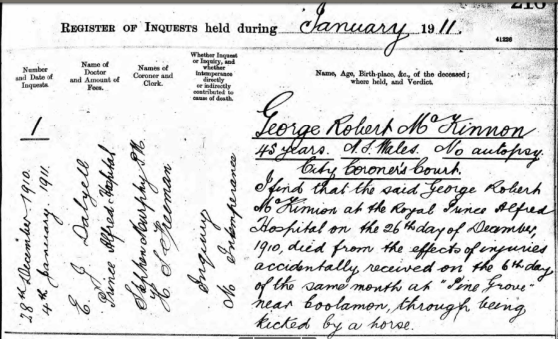 216
REGISTER OF INQUESTS held during January 1911.
41226
Number
and Date of
Inquests.
Name of
Doctor
and Amount of
Fees.
Names of
Coroner and
Clerk.
Whether Inquest
or Inquiry, and
whether
Intemperance
directly
or indirectly
contributed to
cause of death.
Name, Age, Birth-place, &c., of the deceased;
where held, and Verdict.
1
28th December 1910.
4th January 1911.
E. J. Dalzell
Prince Alfred Hospital
Stephen Murphy S.M.
H. S. Freeman
Inquiry
No Intemperance
George Robert McKinnon
45 years. N.S. Wales. No autopsy.
City Coroner's Court.
I find that the said George Robert
McKinnon at the Royal Prince Alfred
Hospital on the 26th day of December,
1910, died from the effects of injuries
accidentally received on the 6th day
of the same month at "Pine Grove"
near Coolamon, through being
kicked by a horse.